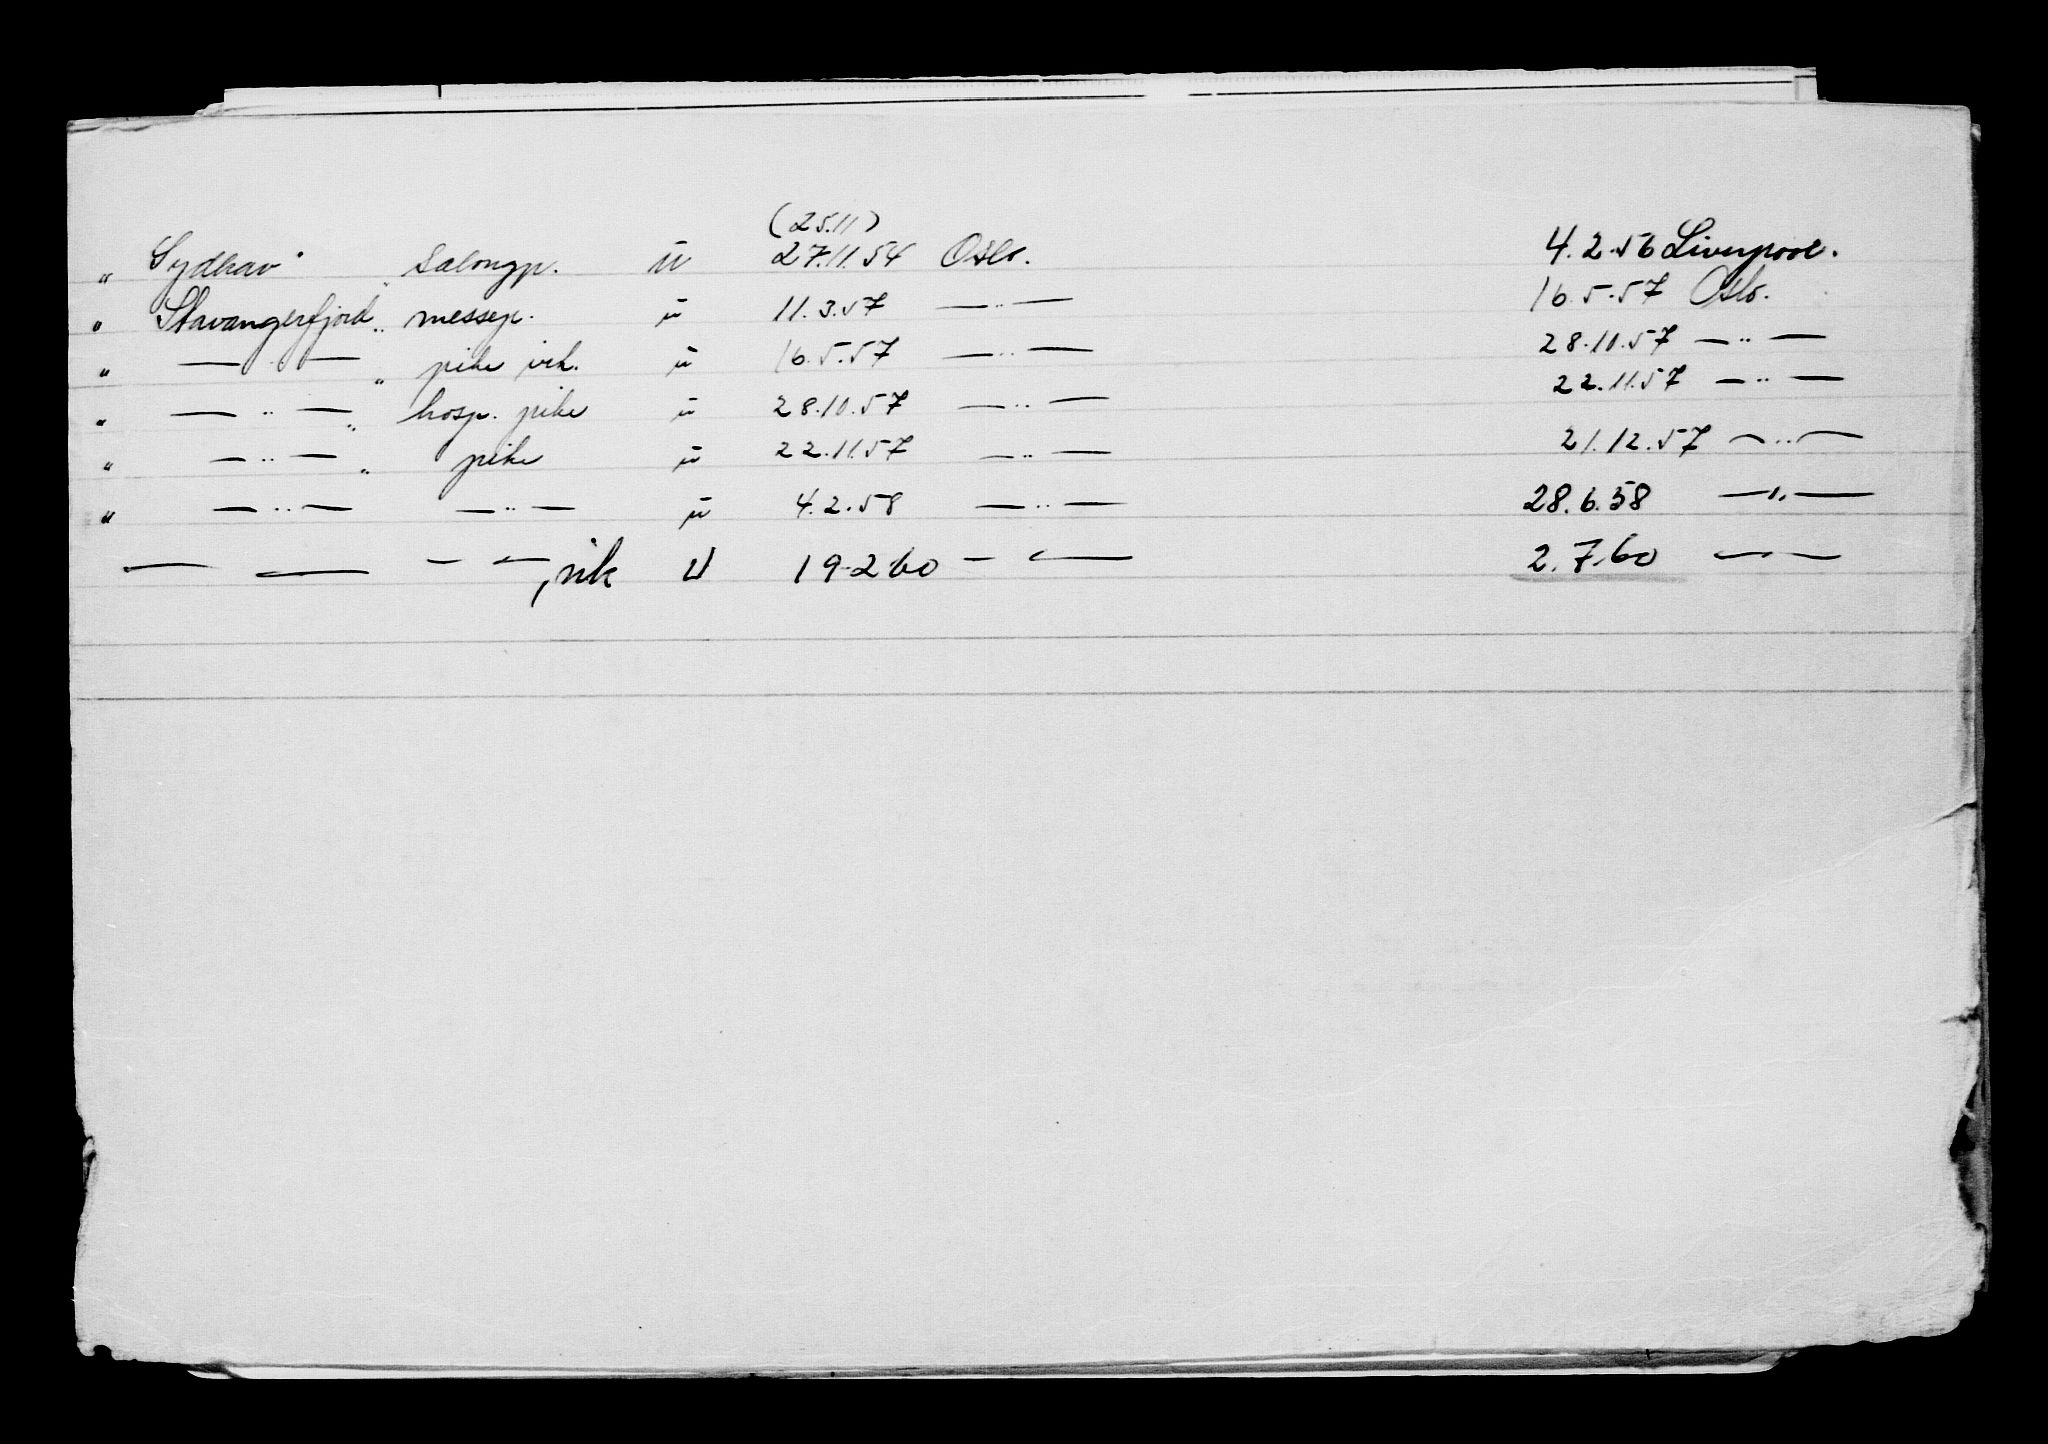 (25.11)
„ Sydhav" Salongp. ü 27.11.54 Oslo. 4.2.56 Liverpool.
„ Stavangerfjord„ messep. ü 11.3.57 —..— 16.5.57 Oslo.
„ —..— „ pike vik. ü 16.5.57 —..— 28.10.57 —..—
„ —..— „ hosp. pike ü 28.10.57 —..— 22.11.57 —..—
„ —..— „ pike ü 22.11.57 —..— 21.12.57 —..—
„ —..— —..— ü 4.2.58 —..— 28.6.58 —..—
— — — —, vik U 19-2 60 — — 2.7.60 — —